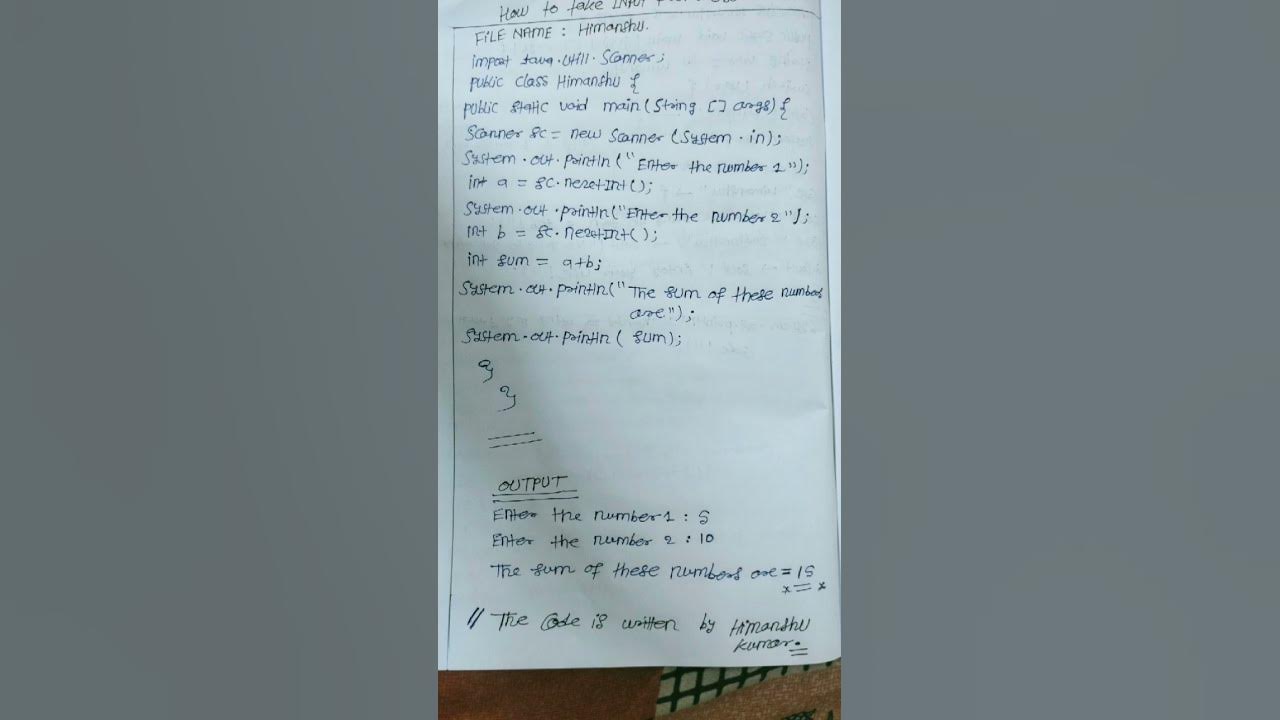 How to take INPUT
FILE NAME : Himanshu.
import java.util.Scanner;
public class Himanshu {
public static void main(String [] args){
Scanner sc = new Scanner (System.in);
System.out.println("Enter the number 1");
int a = sc.nextInt();
System.out.println("Enter the number 2");
int b = sc.nextInt();
int sum = a+b;
System.out.println("The sum of these numbers
are");
System.out.println( sum);
}
}
OUTPUT
Enter the number 1 : 5
Enter the number 2 : 10
The sum of these numbers are = 15
// The Code is written by Himanshu
kumar.